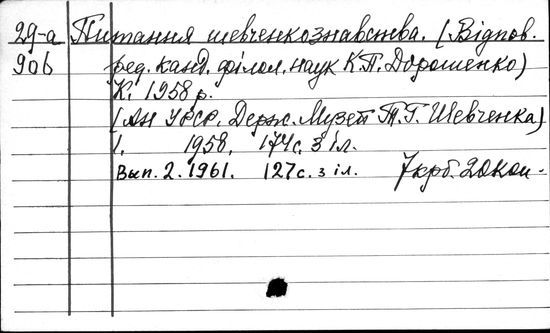 29-а Питання шевченкознавства. (Відпов.
906 ред. канд. філол. наук К.П. Дорошенко)
К. 1958 р.
(АН УРСР. Держ. Музей Т.Г. Шевченка)
1. 1958. 174 с. з іл.
Вып. 2. 1961. 127 с. з іл. 7 крб. 20 коп.